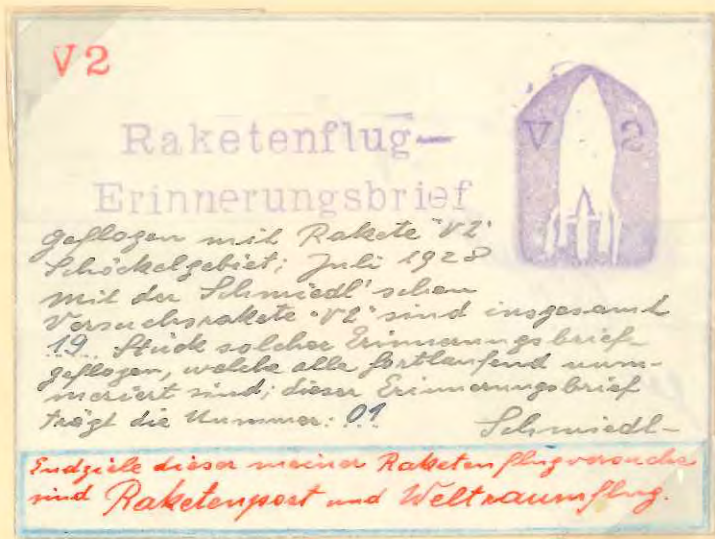 V2
V 2
Raketenflug-
Erinnerungsbrief
geflogen mit Rakete "V2"
Schöckelgebiet; Juli 1928
Mit der Schmiedl'schen
Versuchsrakete "V2" sind insgesamt
19 Stück solcher Erinnerungsbrief-
geflogen, welche alle fortlaufend num-
meriert sind; dieser Erinnerungsbrief
trägt die Nummer: 01
Schmiedl-
Endziele dieser meiner Raketenflugversuche
sind Raketenpost und Weltraumflug.